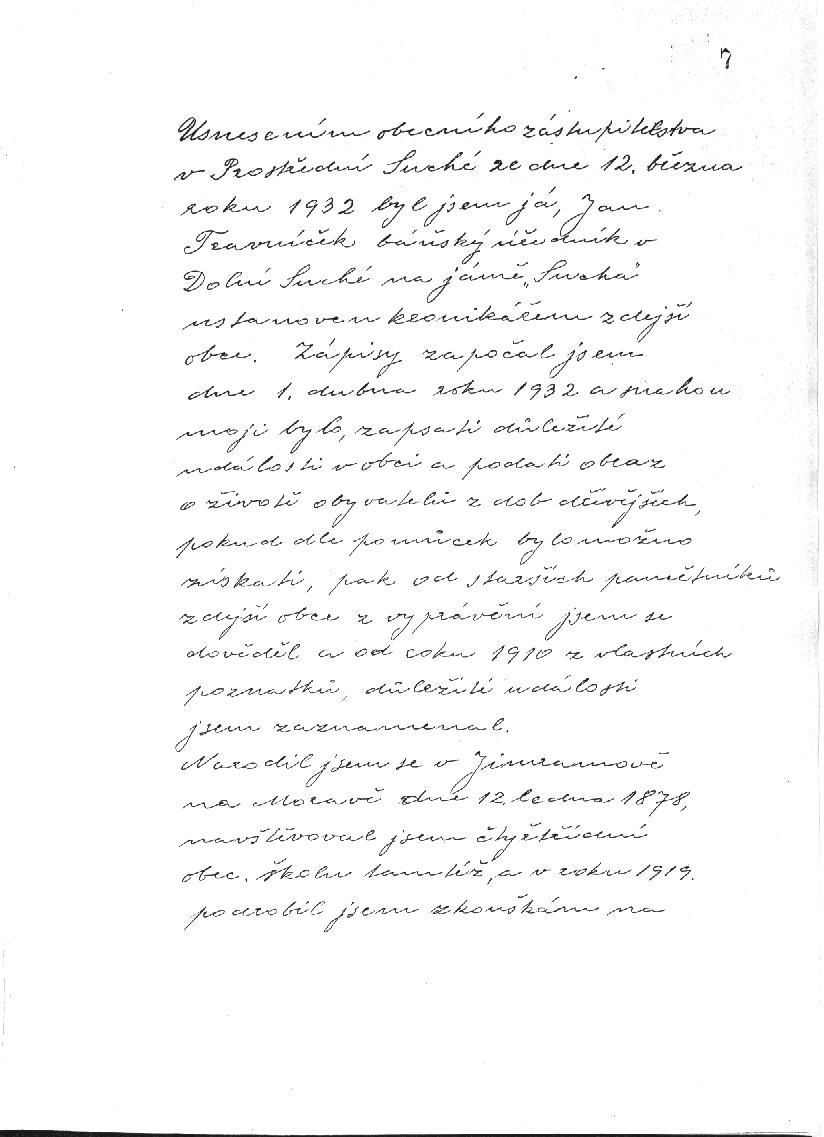 7
Usnesením obecního zástupitelstva
v Prostřední Suché ze dne 12. března
roku 1932 byl jsem já, Jan
Travníček báňský úředník v
Dolní Suché na jámě „Suchá"
ustanoven kronikářem zdejší
obce. Zápisy započal jsem
dne 1. dubna roku 1932 a snahou
moji bylo, zapsati důležité
události v obci a podati obraz
o životě obyvatelů z dob dřívějších,
pokud dle pomůcek bylo možno
získati, pak od starších pamětníků
zdejší obce z vyprávění jsem se
dověděl a od roku 1910 z vlastních
poznatků, důležité události
jsem zaznamenal.
Narodil jsem se v Jimramově
na Moravě dne 12. ledna 1878,
navštěvoval jsem čtyřtřídní
obec. školu tamtéž, a v roku 1919.
podrobil jsem zkouškám na